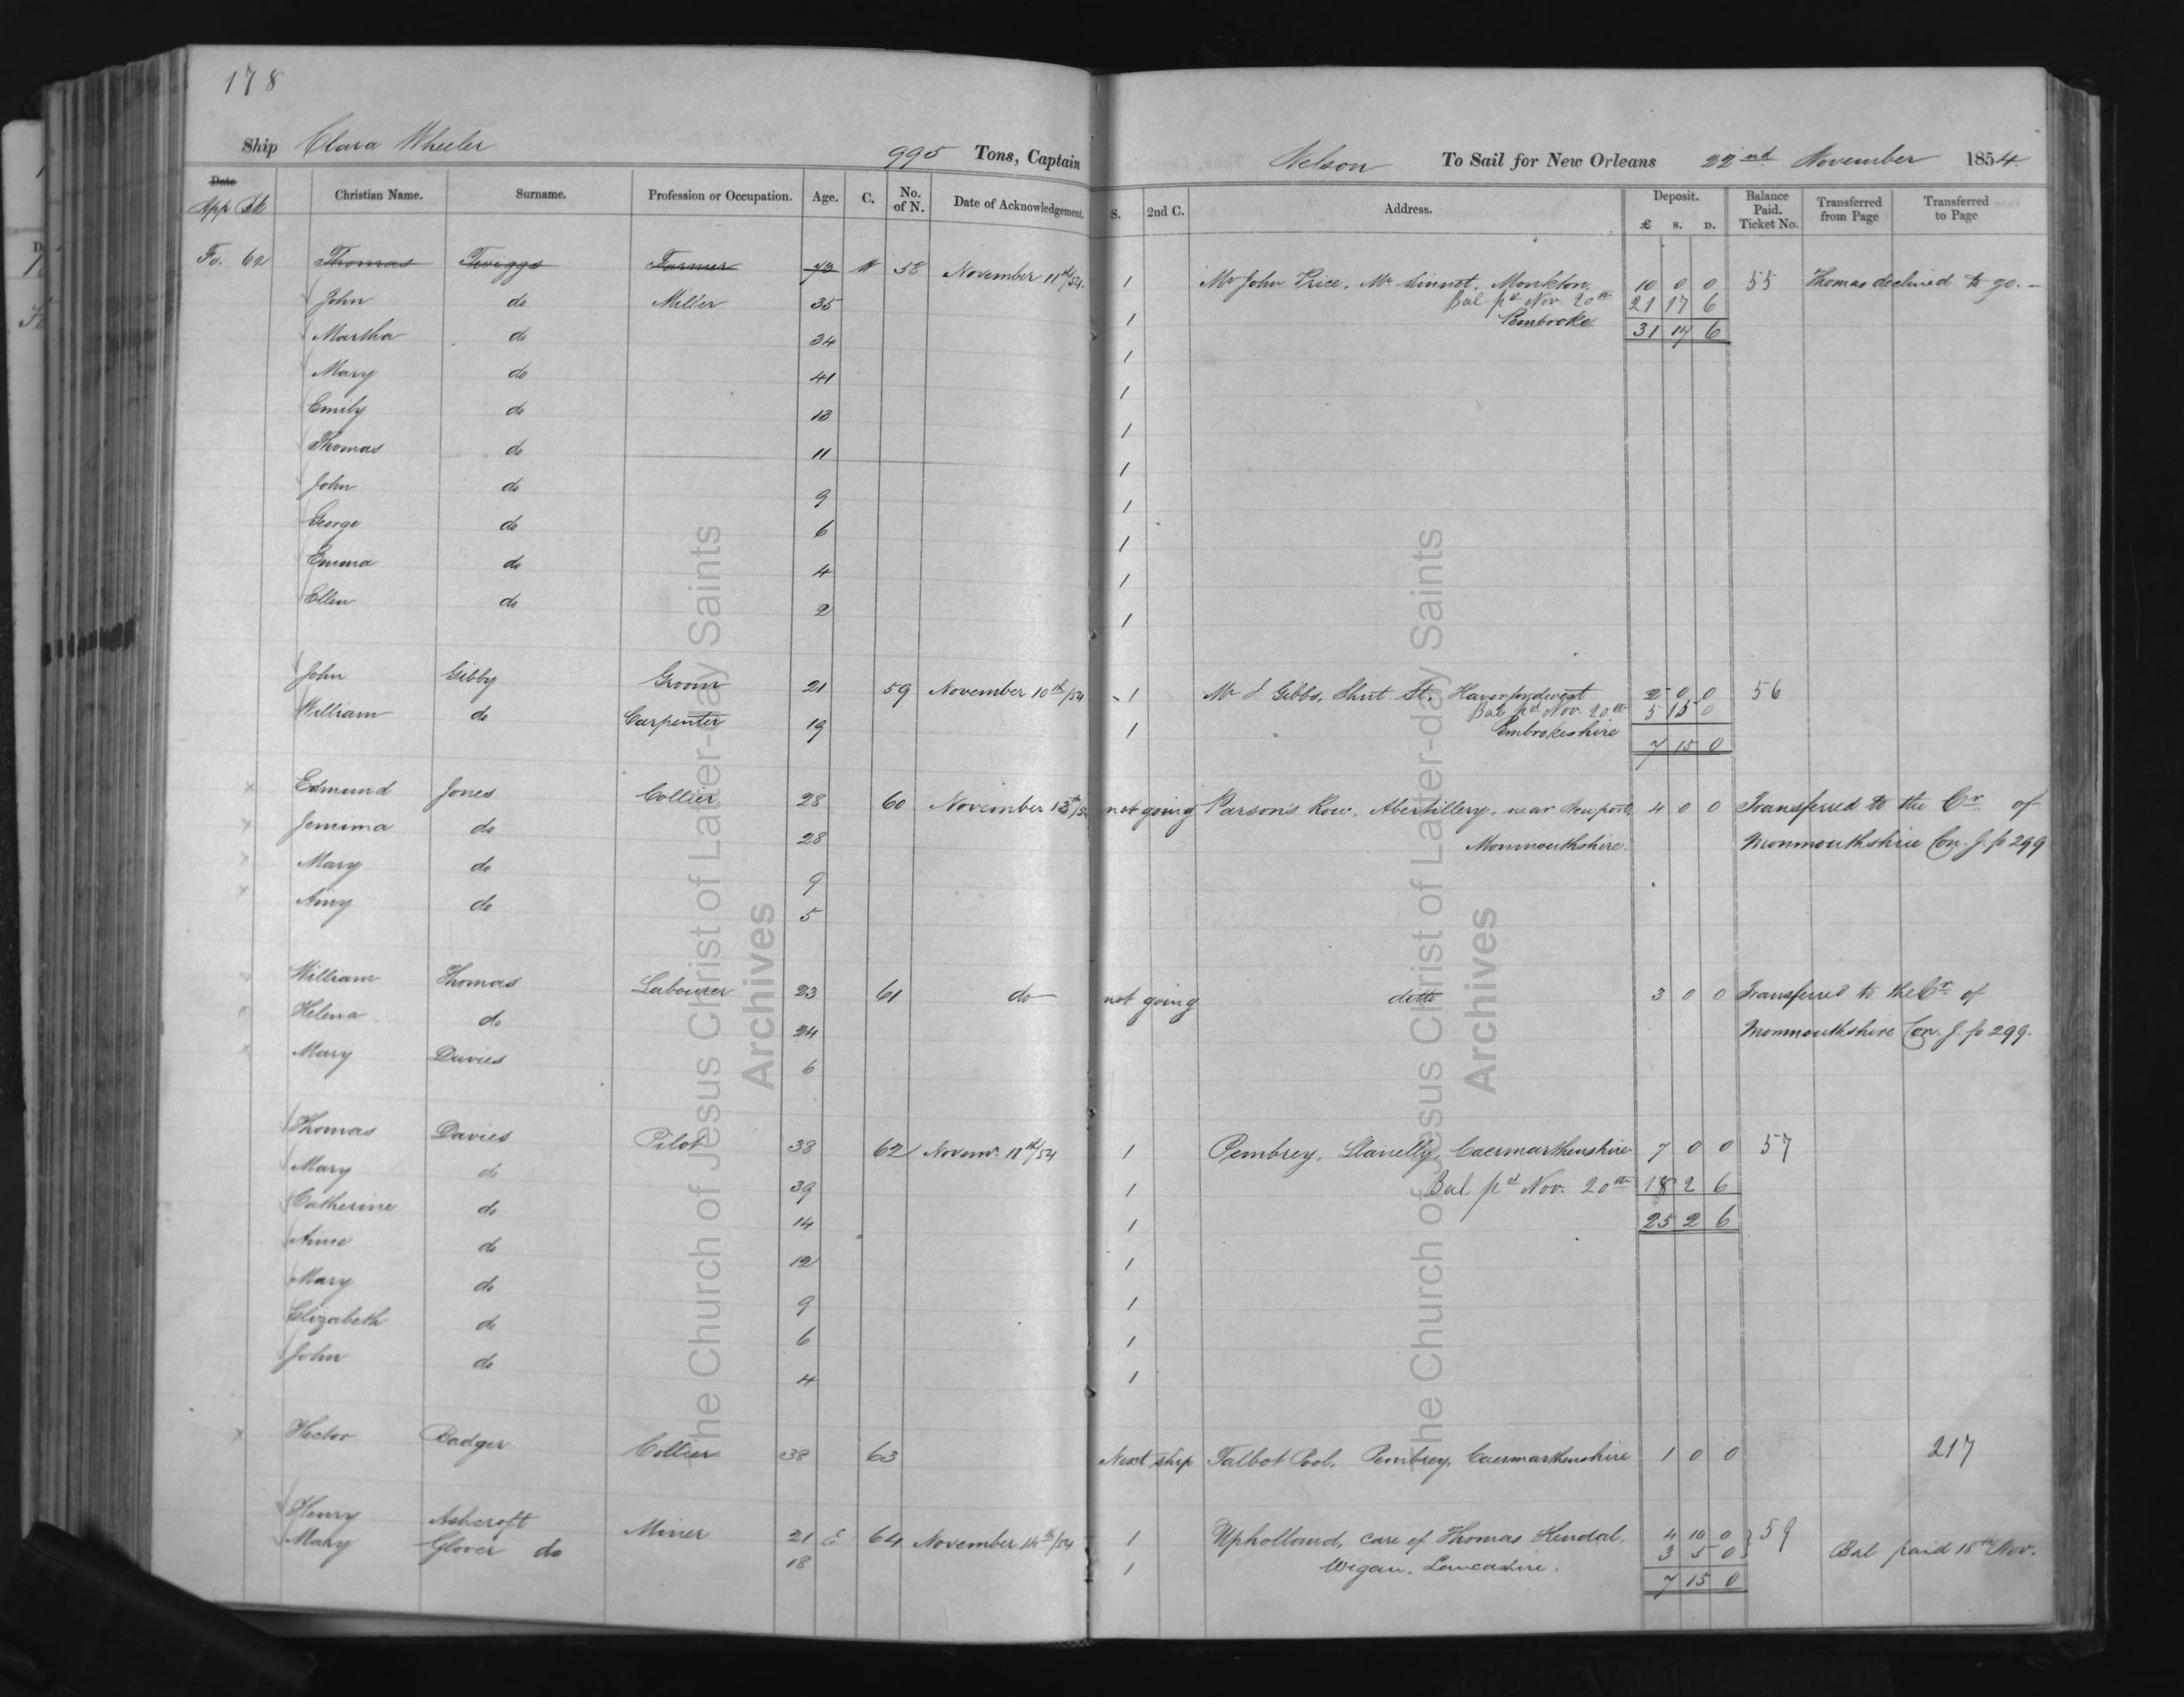 178
Ship Clara Wheeler 995 Tons, Captain Nelson To Sail for New Orleans 22nd November 1854.
Date App Bk Christian Name. Surname. Profession or Occupation. Age. C. No. of N. Date of Acknowledgement. S. 2nd C. Address. Deposit. £ S. D. Balance Paid. Ticket No. Transferred from Page Transferred to Page
Fo. 62 Thomas Twiggs Farmer 73 W 58 November 11th/54. 1 Mr John Price, Mr Sinnet, Monkton, 10 0 0 55 Thomas declined to go. -
John do Miller 35 1 Bal pd Nov. 20th 21 17 6
Pembroke. 31 17 6
Martha do 34 1
Mary do 41 1
Emily do 13 1
Thomas do 11 1
John do 9 1
George do 6 1
Emma do 4 1
Ellen do 2 1
John Gibby Groom 21 59 November 10th/54 1 Mr J. Gibbs, Shut St. Haverfordwest 2 0 0 56
William do Carpenter 19 1 Bal pd Nov. 20th 5 15 0
Pembrokeshire 7 15 0
Edmund Jones Collier 28 60 November 13th/54 not going Parson's Row, Abertillery, near Newport, 4 0 0 Transferred to the Cr of
Jemima do 28 Monmouthshire. Monmouthshire Con. J. p 299
Mary do 9
Amy do 5
William Thomas Labourer 23 61 do not going ditto 3 0 0 Transferred to the Cr of
Helena do 24 Monmouthshire Con. J. p 299.
Mary Davies 6
Thomas Davies Pilot 38 62 Novemr. 11th/54 1 Pembrey, Llanelly, Caermarthenshire 7 0 0 57
Mary do 39 1 Bal pd Nov. 20th 18 2 6
Catherine do 14 1 25 2 6
Anne do 12 1
Mary do 9 1
Elizabeth do 6 1
John do 4 1
Hector Badger Collier 38 63 Next ship Talbot Pool, Pembrey, Caermarthenshire 1 0 0 217
Henry Ashcroft Miner 21 E 64 November 14th/54 1 Upholland, care of Thomas Kendal, 4 10 0 59
Mary Glover do 18 1 Wigan, Lancashire. 3 5 0 Bal paid 18th Nov.
7 15 0
The Church of Jesus Christ of Latter-day Saints
Archives
The Church of Jesus Christ of Latter-day Saints
Archives